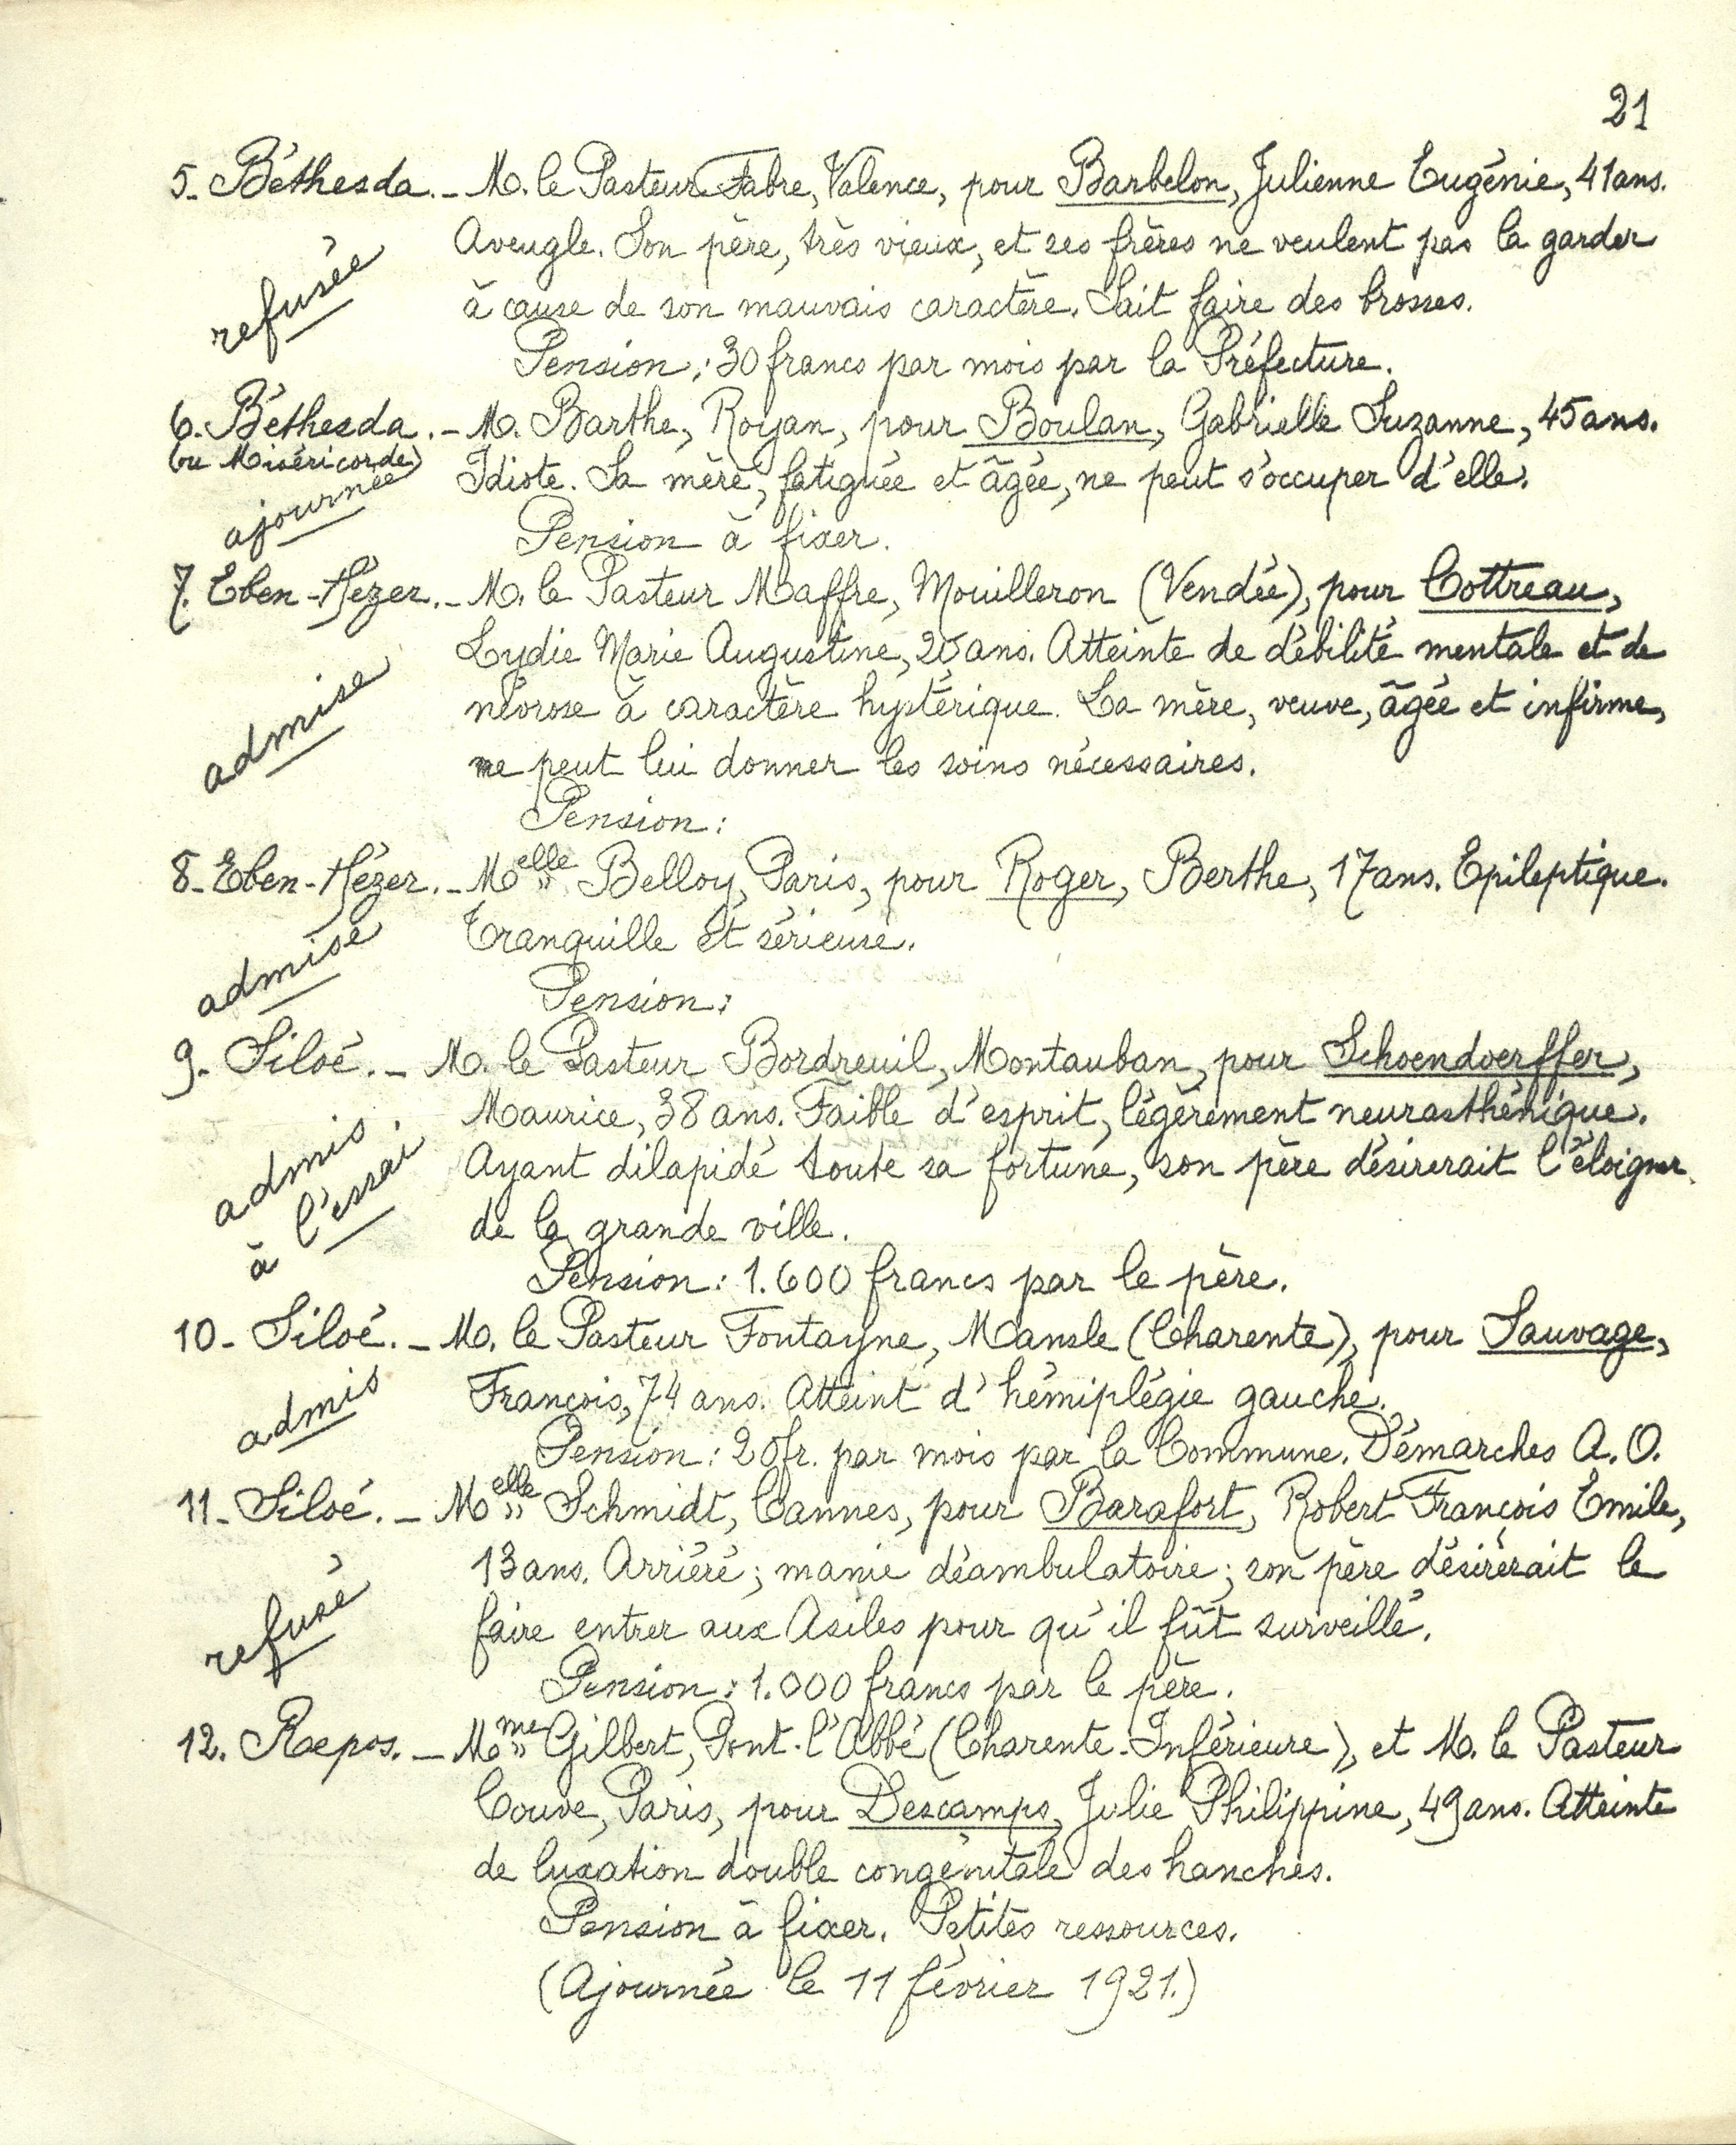 21
5. Béthesda. _ M. le Pasteur Fabre, Valence, pour Barbelon, Julienne Eugénie, 41 ans.
Aveugle. Son père, très vieux, et ses frères ne veulent pas la garder
refusée
à cause de son mauvais caractère. Sait faire des brosses.
Pension : 30 francs par mois par la Préfecture.
6. Béthesda. _ M. Barthe, Royan, pour Boulan, Gabrielle Suzanne, 45 ans.
(ou Miséricorde)
Idiote. Sa mère, fatiguée et âgée, ne peut s'occuper d'elle.
ajournée
Pension à fixer.
7. Eben-Hézer. _ M. le Pasteur Maffre, Mouilleron (Vendée), pour Cottreau,
Lydie Marie Augustine, 20 ans. Atteinte de débilité mentale et de
névrose à caractère hystérique. La mère, veuve, âgée et infirme,
admise
ne peut lui donner les soins nécessaires.
Pension :
8. Eben-Hézer. _ Melle Belloy, Paris, pour Roger, Berthe, 17 ans. Epileptique.
Tranquille et sérieuse.
admise
Pension :
9. Siloé. _ M. le Pasteur Bordreuil, Montauban, pour Schoendoerffer,
Maurice, 38 ans. Faible d'esprit, légèrement neurasthénique.
admis
à l'essai
Ayant dilapidé toute sa fortune, son père désirerait l'éloigner
de la grande ville.
Pension : 1.600 francs par le père.
10. Siloé. _ M. le Pasteur Fontayne, Mansle (Charente), pour Sauvage,
François, 74 ans. Atteint d'hémiplégie gauche.
admis
Pension : 20 fr. par mois par la Commune. Démarches A. O.
11. Siloé. _ Melle Schmidt, Cannes, pour Barafort, Robert François Emile,
13 ans. Arriéré ; manie déambulatoire ; son père désirerait le
refusé
faire entrer aux Asiles pour qu'il fût surveillé.
Pension : 1.000 francs par le père.
12. Repos. _ Mme Gilbert, Pont-l'Abbé (Charente-Inférieure), et M. le Pasteur
Couve, Paris, pour Descamps, Julie Philippine, 49 ans. Atteinte
de luxation double congénitale des hanches.
Pension à fixer. Petites ressources.
(Ajournée le 11 février 1921.)